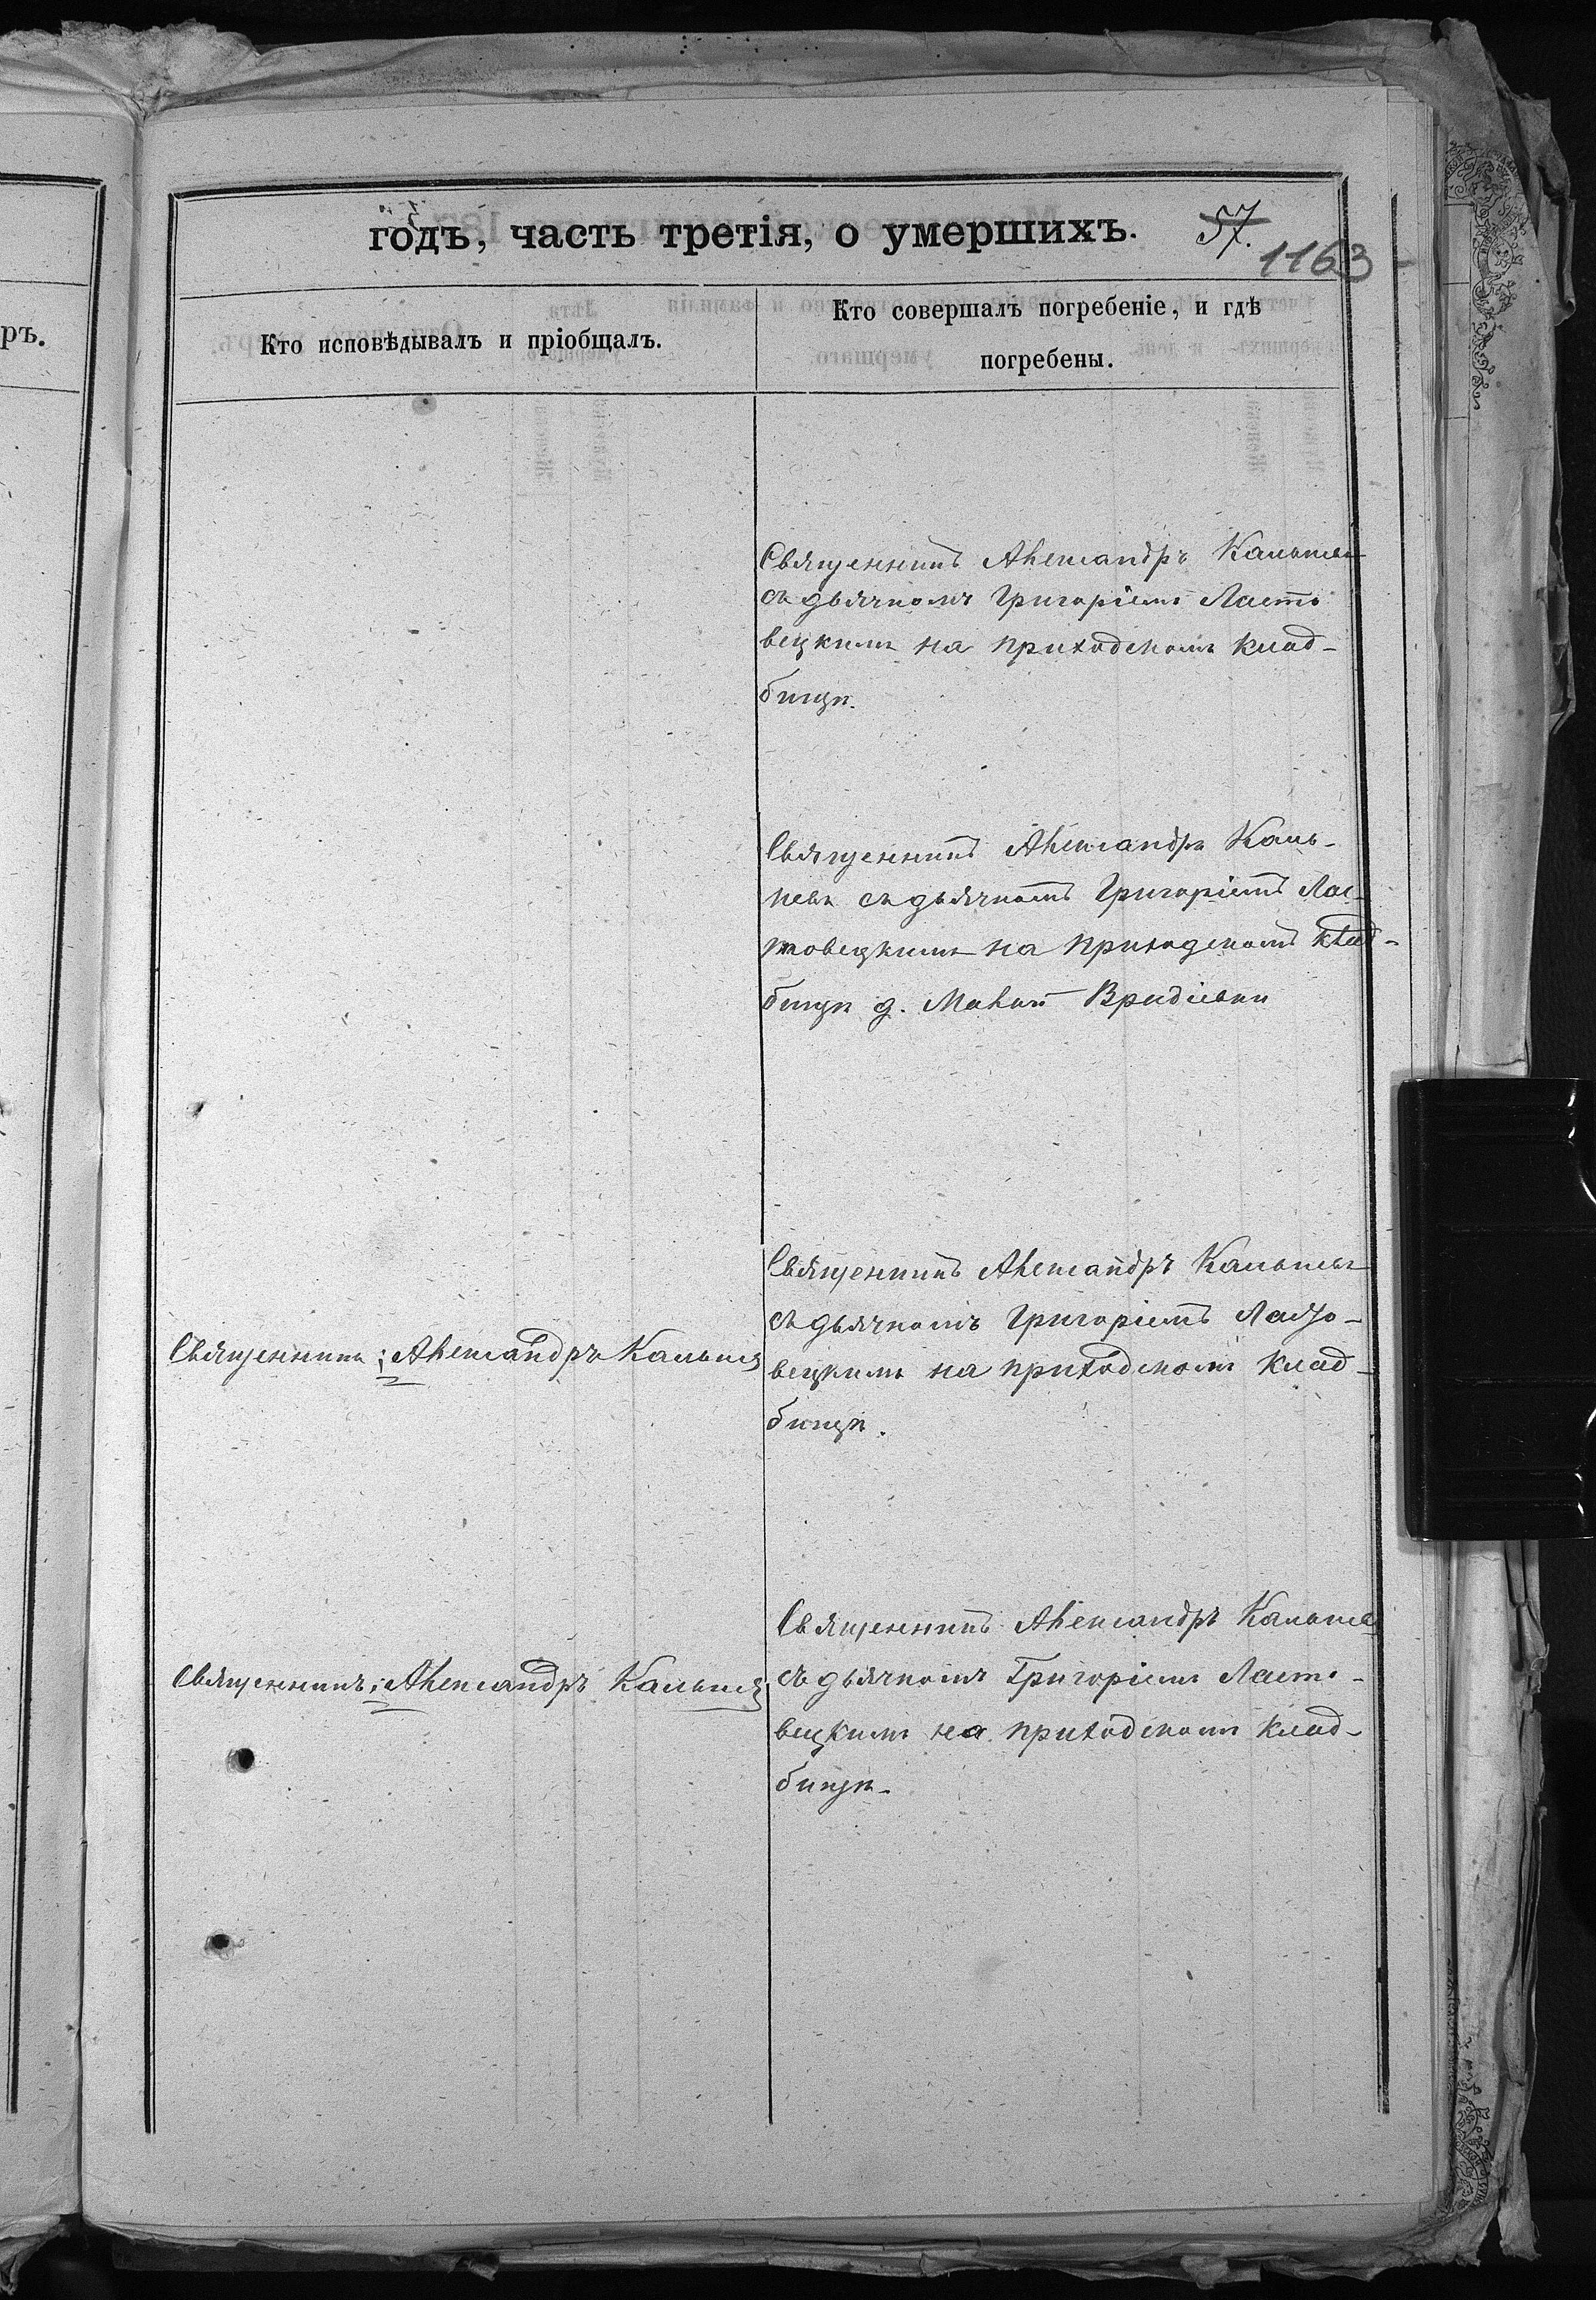 ръ.
годъ, часть третія, о умершихъ.
57.
1163
Кто исповѣдывалъ и пріобщалъ.
Кто совершалъ погребеніе, и гдѣ
погребены.
Священникъ Александръ Кальневъ
съ дьячкомъ Григоріемъ Ласто
вецкимъ на приходскомъ клад-
бищѣ.
Священникъ Александръ Каль-
невъ съ дьячкомъ Григоріемъ Лас-
товецкимъ на приходскомъ клад-
бищѣ д. Малой
Священникъ Александръ Кальневъ
съ дьячкомъ Григоріемъ Ласто-
вецкимъ на приходскомъ клад-
бищѣ.
Священникъ; Александръ Кальнев
Священникъ Александръ Кальнев
съ дьячкомъ Григоріемъ Ласто-
вецкимъ на приходскомъ клад-
бищѣ.
Священникъ; Александръ Кальнев